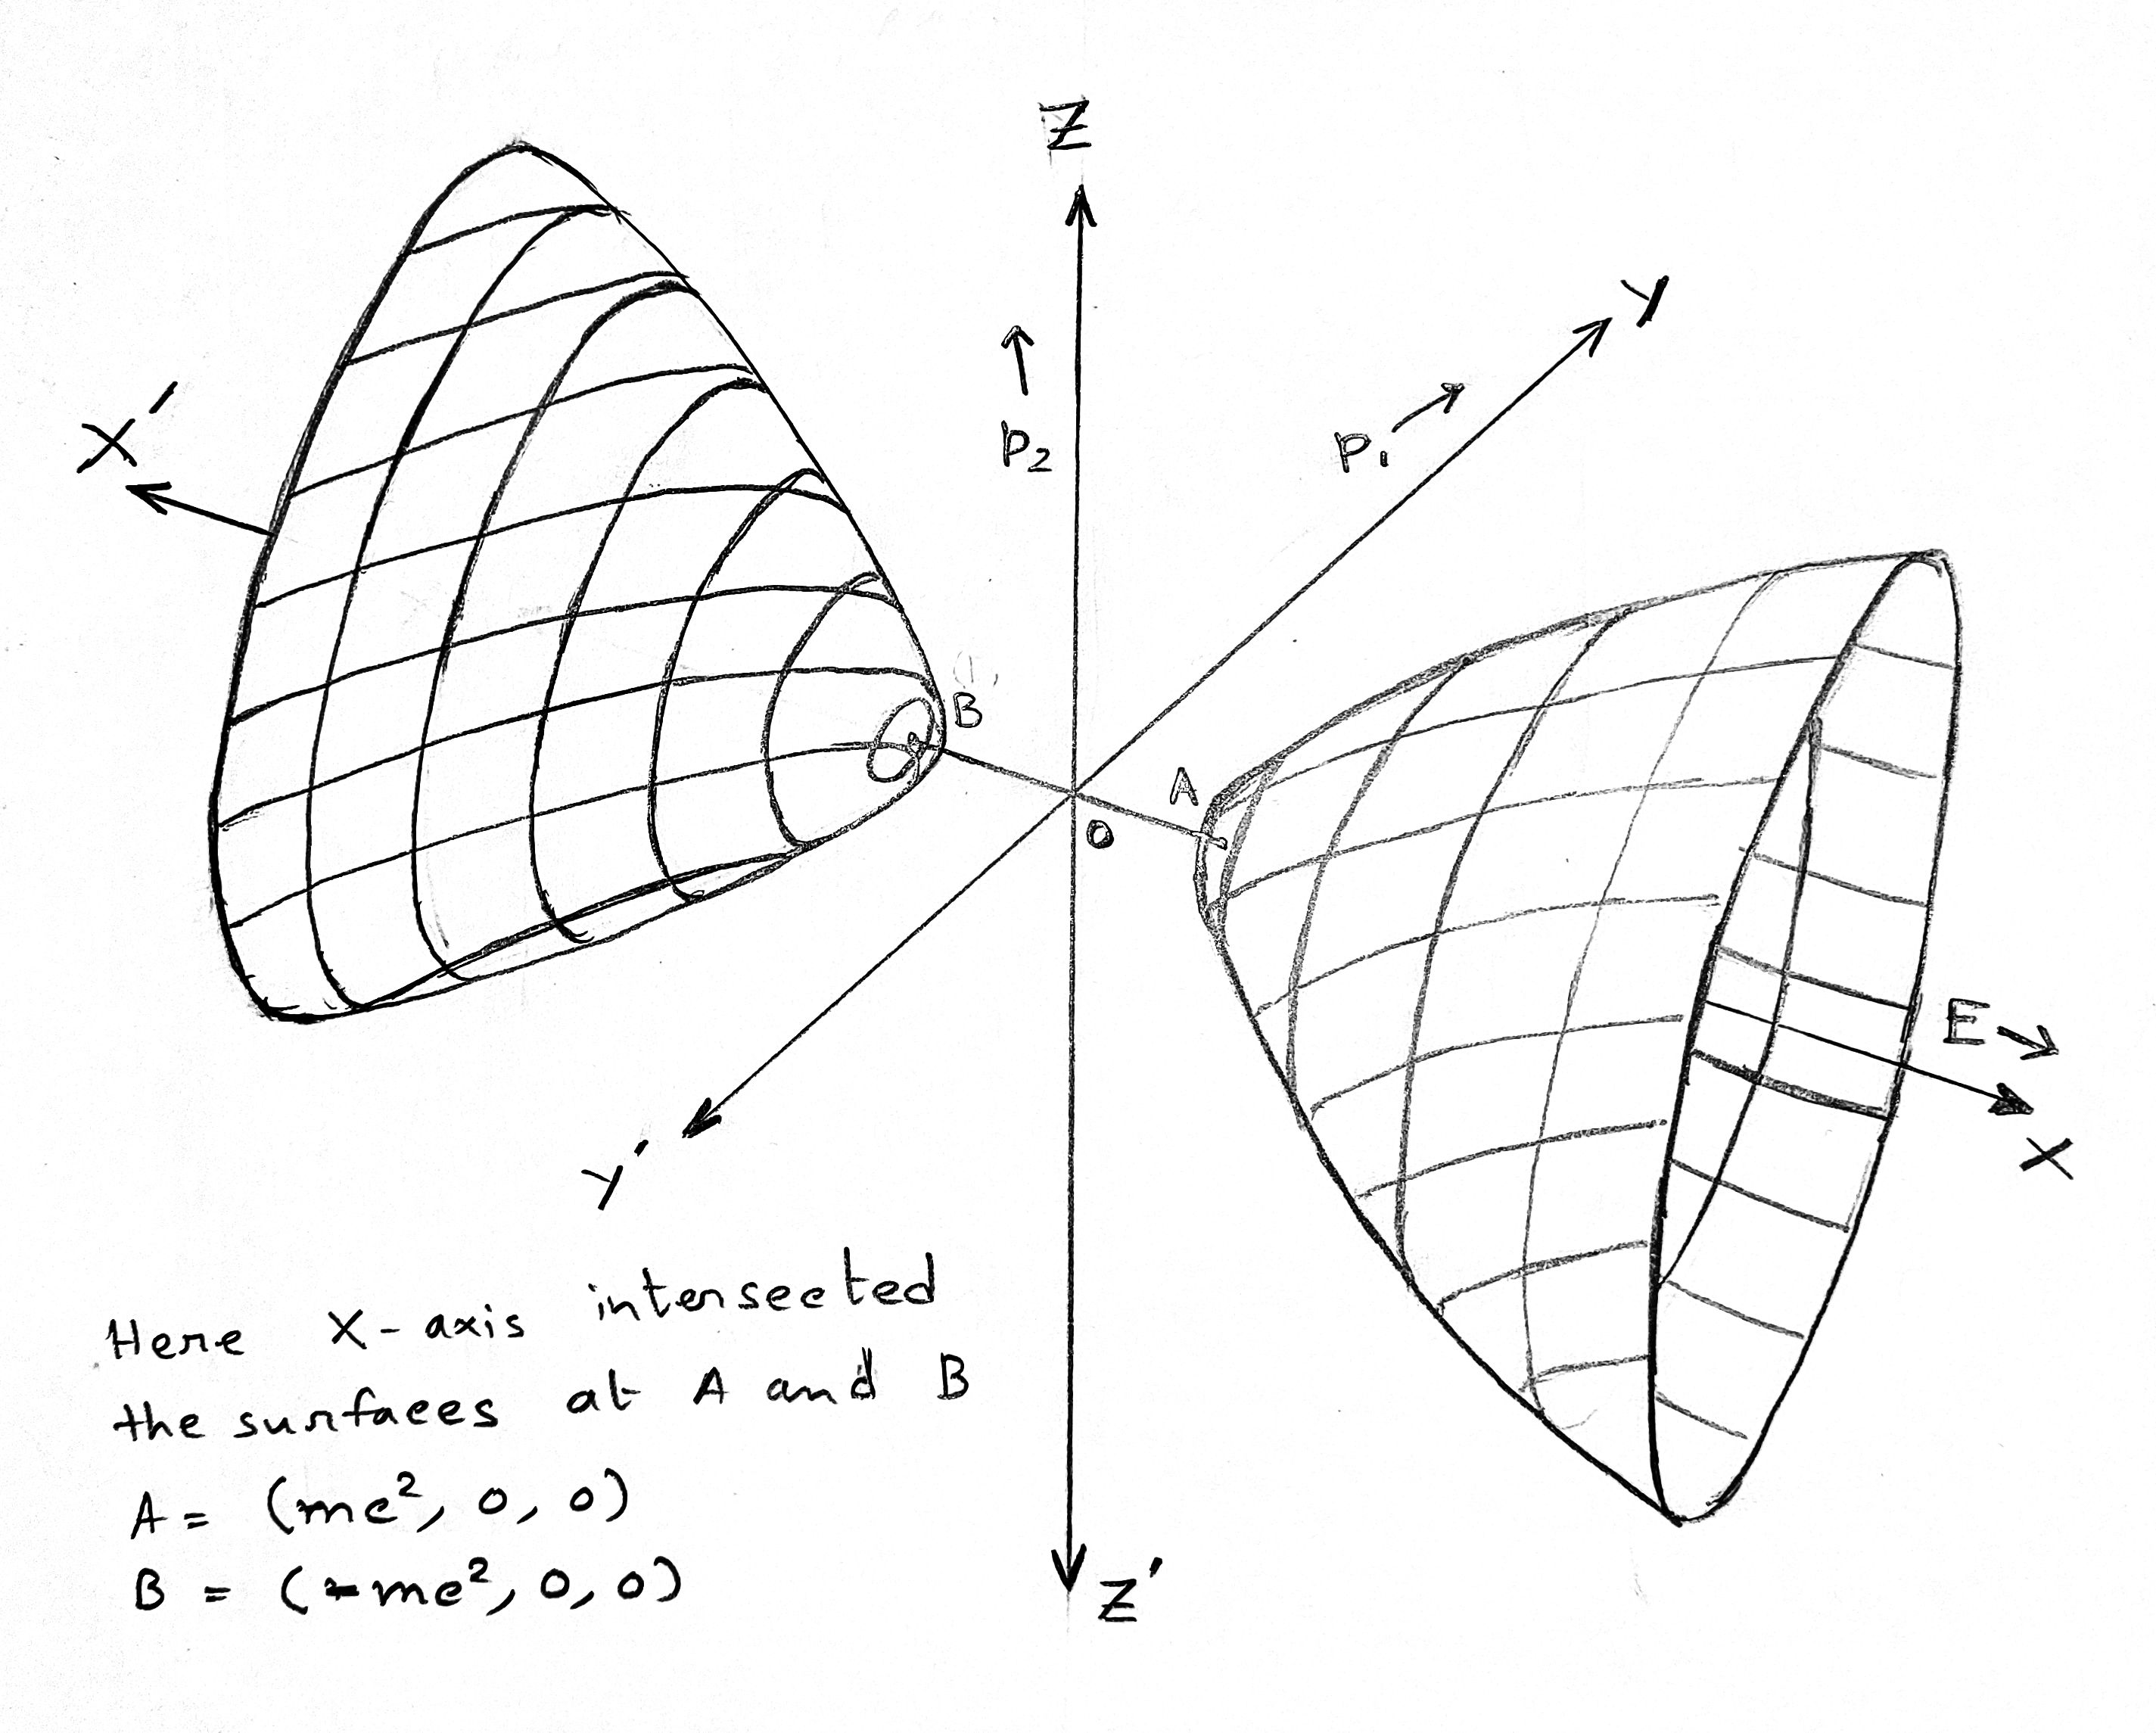 Z
Y
P₂ ↑
P₁ →
X'
B
A
O
E →
X
Y'
Here X-axis intersected
the surfaces at A and B
A = (mc², 0, 0)
B = (-mc², 0, 0)
Z'